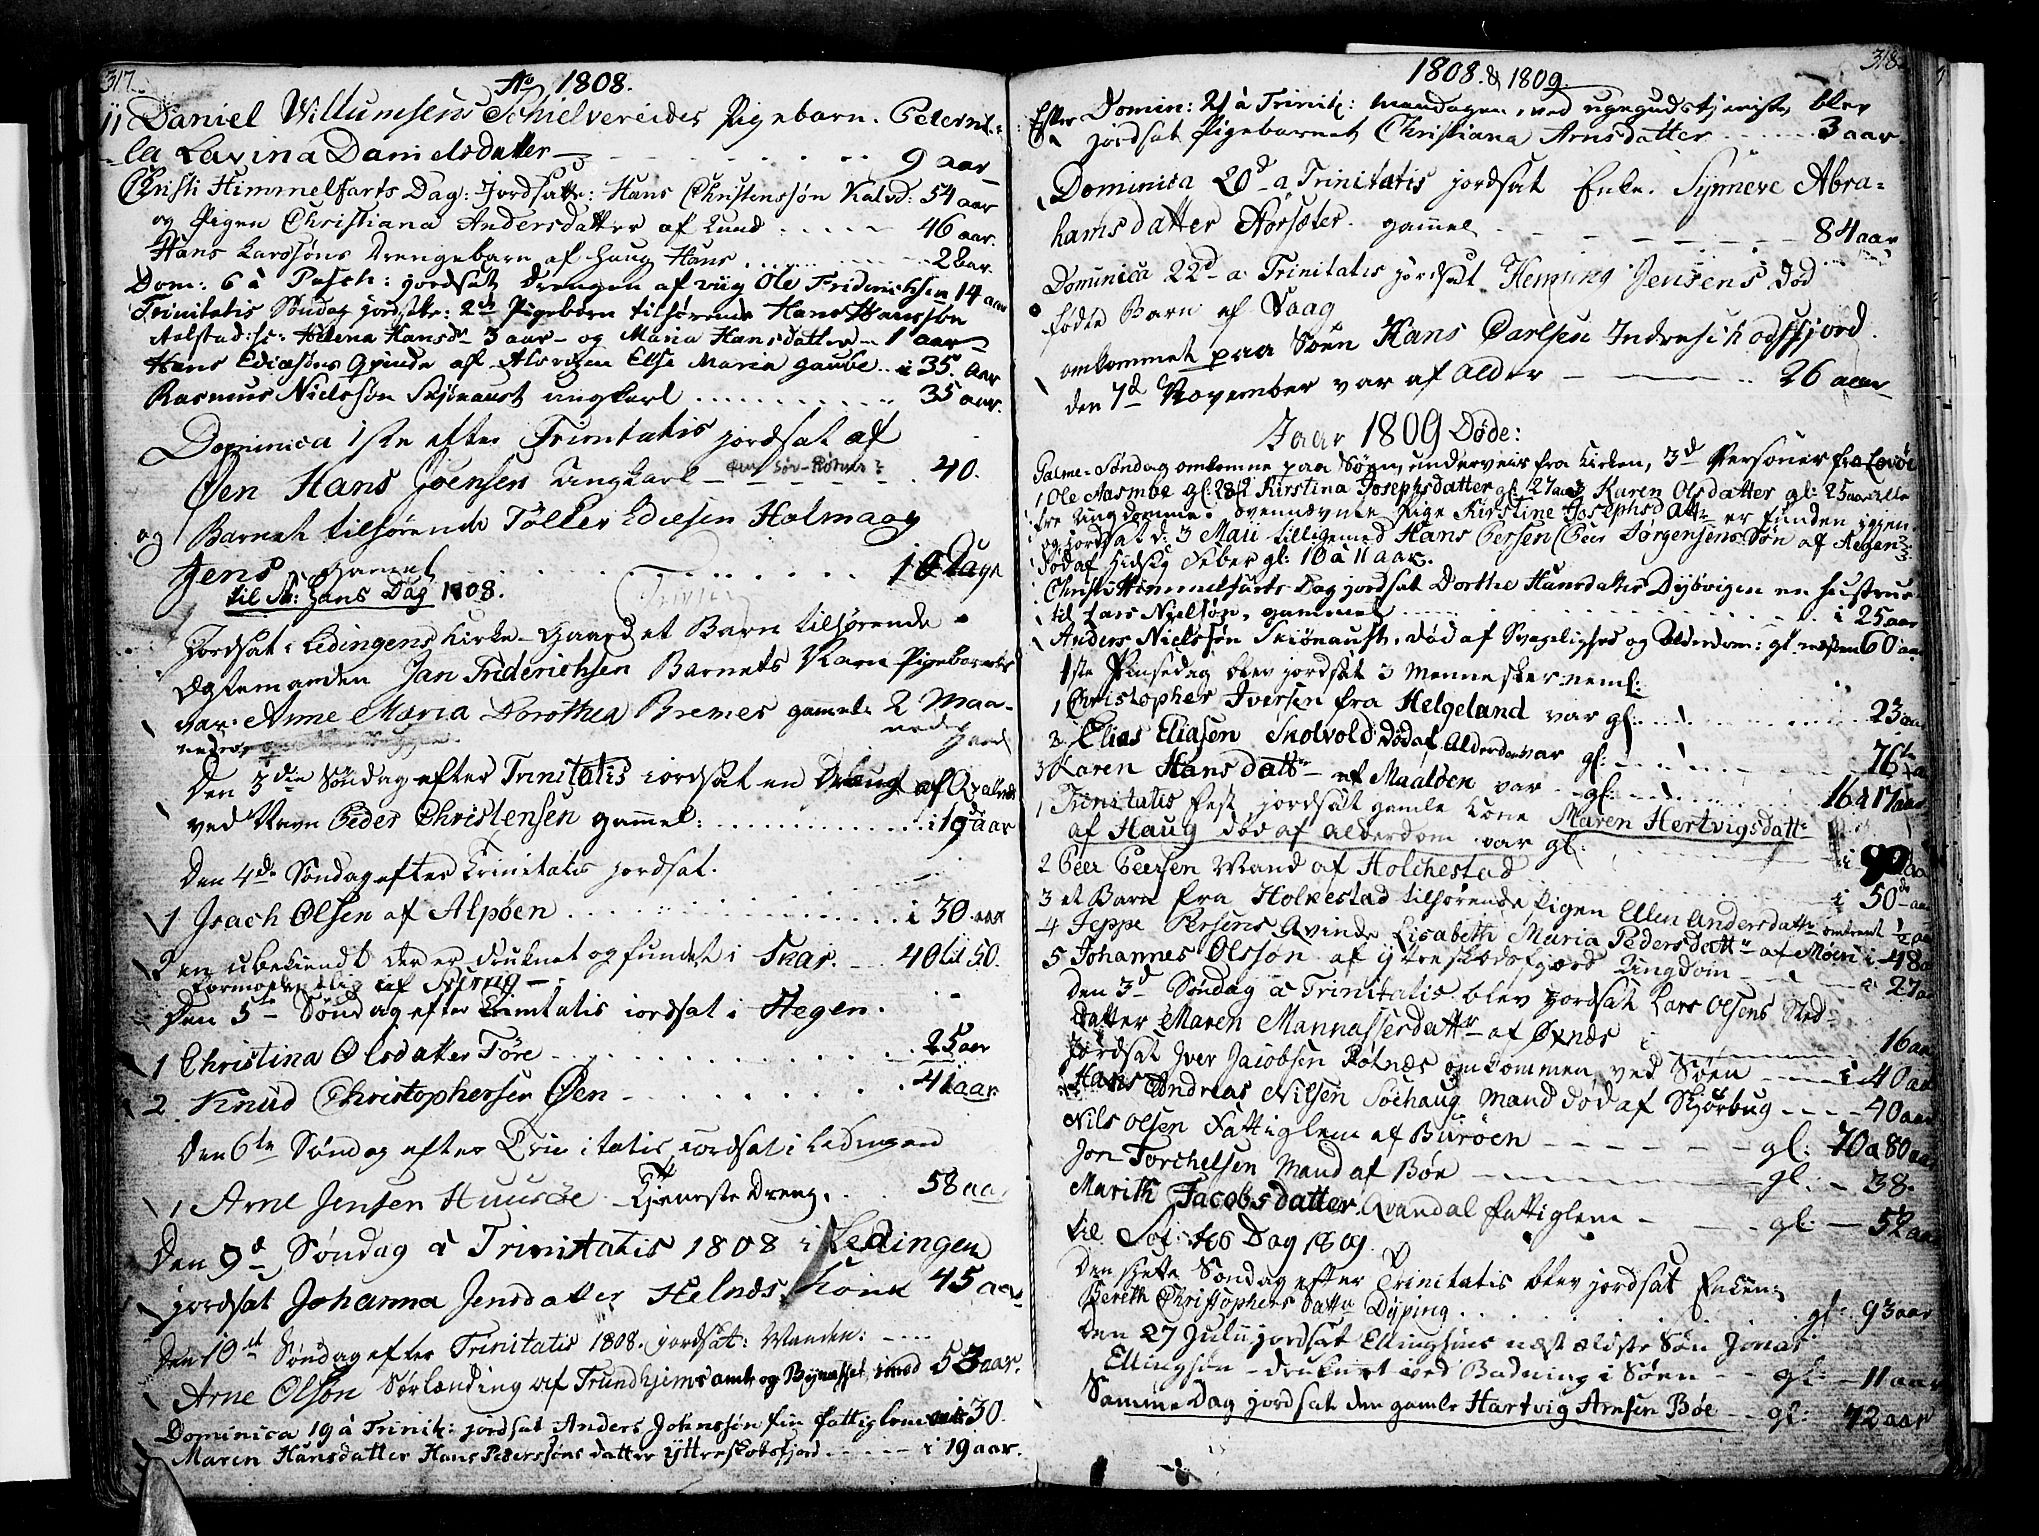 317
Ao 1808.
11 Daniel Willumsens Schielvereides Pigebarn. Peternil=
la Lavina Danielsdatter - 9 aar
Christi Himmelfarts Dag: Jordsatte: Hans Christenssøn Kalvd: 54 aar
og Pigen Christiana Andersdatter af Lund ..... 46 aar.
Hans Larssøns Drengebarn af Haug Hans ..... 2 aar.
Dom: 6 à Pasch: jordsat Drengen af Olе Friderichsen 14 aar
Trinitatis Søndag jordsatte: 2de Pigebørn tilhørende Hans Hanssøn
Aalstad: Helena Hansdr 3 aar - og Maria Hansdatter - 1 aar
Hans Qvinde af Else Maria .. i 35. aar
Rasmus Nielssøn Skjønaust ungkarl ........... 35 aar.
Dominica 1ste efter Trinitatis jordsat af
Øen Hans Joensen Ungkarl - 40.
og Barnet tilhørende Tøller Holmaag
Jens gamel ........ 10 Dage
til St: Hans Dag 1808.
Jordsat i Lødingens Kirke-Gaard et Barn tilhørende
Ægtemanden Jan Friderichsen Barnets Navn Pigebarnet
var. Anne Maria Dorothea Bremes gamel: 2 Maa-
neder
Den 3die Søndag efter Trinitatis iordsat en af
ved Navn Peder Christensen gammel: ........... i 19 aar
Den 4de Søndag efter Trinitatis jordsat.
1 Isach Olsen af Alpøen ........... i 30 aar
2 en ubekiendt der er druknet og fundet i Skar. - 40 til 50.
formodendlig af
Den 5te Søndag efter Trinitatis iordsat i Hegen.
1 Christina Olsdatter Töre ........ 25 aar
2 Knud Christophersen Øen - ...... 41 aar.
Den 6te Søndag efter Trinitatis iordsat i Lødingen
1 Arne Jensen Huusöe Tjeneste Dreng. .. 58 aar
Den 9de Søndag à Trinitatis 1808 i Lødingen
jordsat Johanna Jensdatter Helnæs Kone 45 aar
Den 10de Søndag efter Trinitatis 1808. jordsat: Manden:
Arne Olsøn Sørlænding af Trundhjems amt og 53 aar.
Dominica 19 à Trinit: jordsat Anders Johnssøn fattiglem 30.
Maren Hansdatter Hans Pederssøns datter Yttreskobsfjord ..... i 19 aar.
318
1808. & 1809.
Efter Domin: 21 à Trinit: mandagen, ved ugegudstjeniste, blev
jordsat Pigebarnet Christiana Arnsdatter ...... 3 aar.
Dominica 20de a Trinitatis jordsat Enke. Synneve Abra=
hamsdatter gammel - - - 84 aar
Dominica 22de a Trinitatis jordsat Hemming Jensens Død
fødte Barn af Vaag
omkommet paa Søen Hans Carlsen Indreschodsfjord.
den 7de November var af Alder - - - 26 aar
I Aar 1809 Døde:
Palme-Søndag omkomne paa Søen, underveis fra Kirken, 3de Personer fra
1 Ole Aasmoe gl: 28, 2 Kirstina Josephsdatter gl: 27 aar 3 Karen Olsdatter gl: 25 aar alle
tre Ungdomme: ovennævnte Pige Kirstine Josephsdattr er funden igjen
og jordsat d: 3 Maii tilligemed Hans Persen (Peer Jørgensens Søn af Hegen
død af Hidsig Feber gl: 10 à 11 aar.
Christi Himmelfarts-Dag jordsat Dorthe Hansdatter Dybvigen en hustrue
til Lars Nielsøn, gammel ........ i 25 aar
Anders Nielssøn Skiönaust, død af Svagelighed og Alderdom: gl. næsten 60 aar
1ste Pinsedag blev jordsat 3 Mennesker neml:
1 Christopher Iversen fra Helgeland var gl: ........ 23 aar
2 Elias Eliasen Skolvold død af Alderdom var gl: ...... 76 aar
3 Karen Hansdattr af Maaløen var gl: ...... 16 à 17 aar
1 Trinitatis Fest jordsat gamle Kone Maren Hertvigsdattr
af Haug død af alderdom var gl: 90 aar
2 Peer Peersen Mand af Holchestad ...... i 50 aar
3 et Barn fra Holkestad tilhørende Pigen Ellen Andersdattr omtrent 1/2 aar
4 Jeppe Persens Qvinde Lisabeth Maria Pedersdattr af Møen i 48 aar
5 Johannes Olssøn af ytreskodsfjord Ungdom - - i 27 aar
Den 3de Søndag à Trinitatis blev jordsat Lars Olsens Sted-
datter Maren Mannassesdattr af Øxnæs i ...... 16 aar
jordsat Iver Jacobsen Rötnæs omkommen ved Søen - - i 40 aar
Hans Andreas Nilsen Söehaug Mand død af Skjørbug - - - 40 aar
Nils Olsen Fattiglem af Buröen - - - gl: 70 a 80 aar
Jon Torchelsen Mand af Böe - - - gl: - 38.
Marith Jacobsdatter Qvandal Fattiglem - - - gl: - 52 aar
til Dag 1809.
Den Siette Søndag efter Trinitatis blev jordsat Enken
Bereth Christophersdattr Dyping ...... gl: 93 aar
Den 27 Julii jordsat Ellingsens næst ældste Søn Jonas
Ellingsøn - druknet ved Badning i Søen - - gl: - 11 aar
Samme Dag jordsat den gamle Hartvig Arnsen Böe - gl: 72 aar